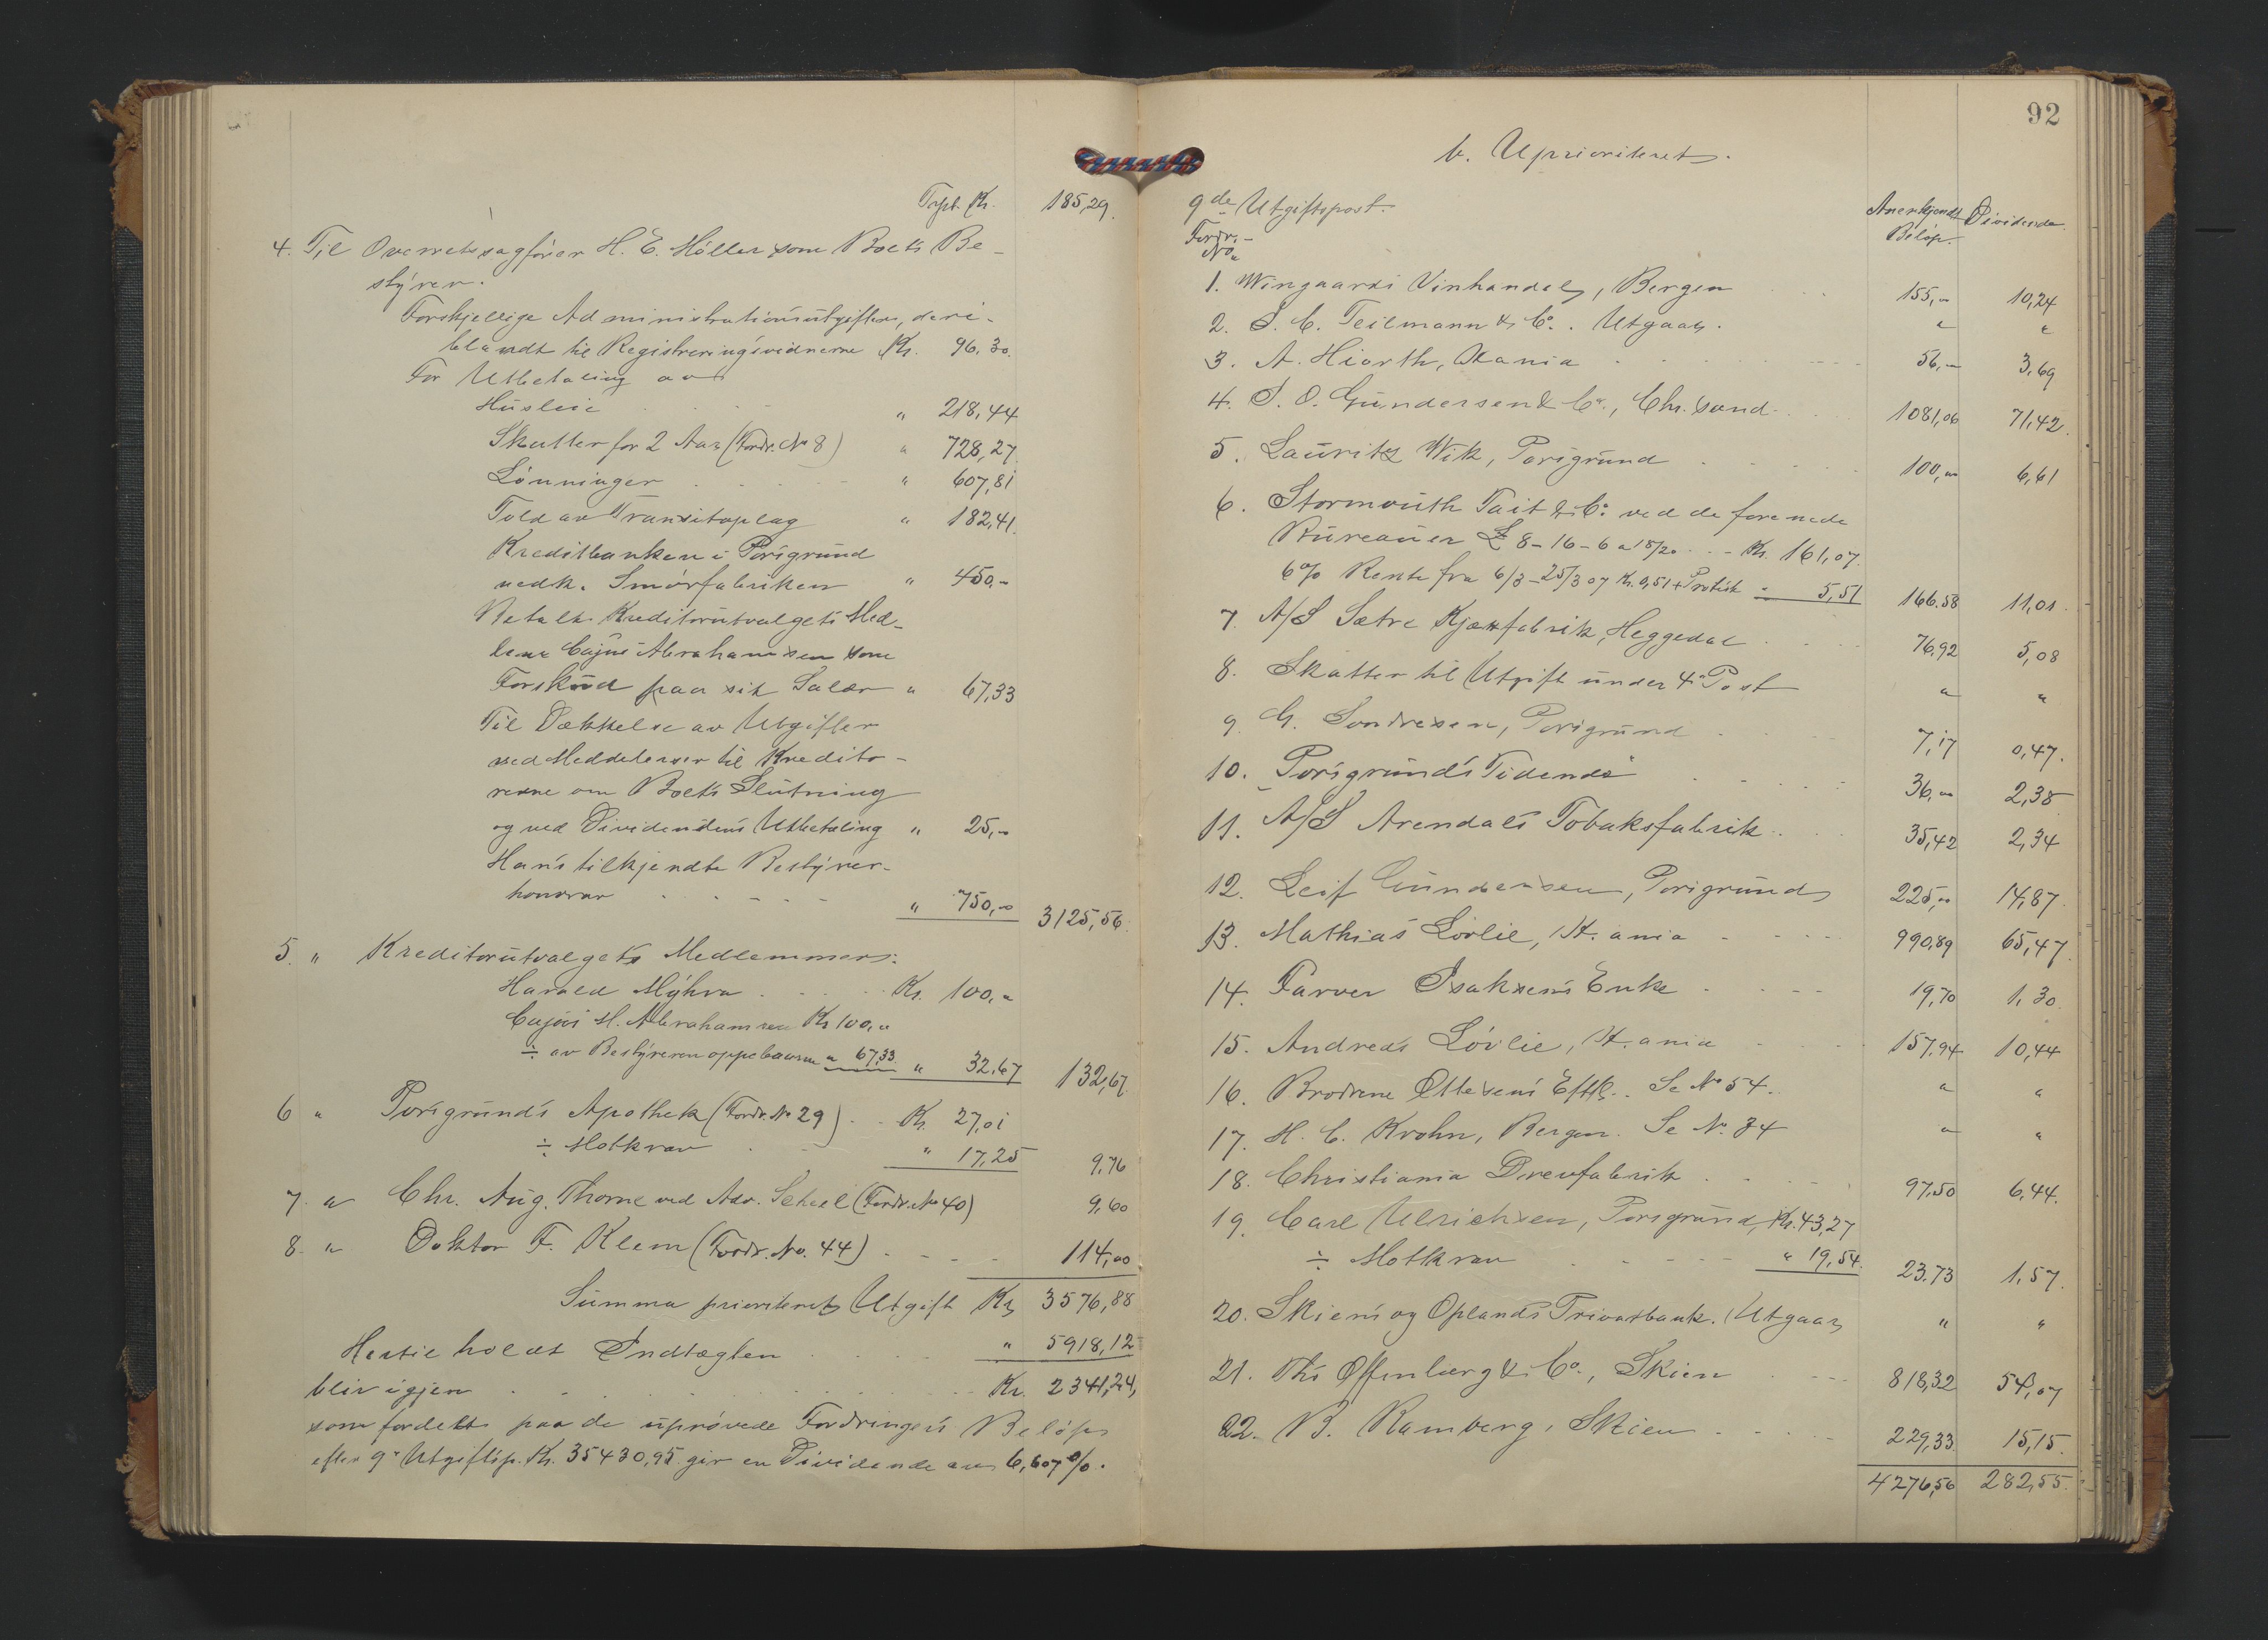 Trspt. Kr. 185,29.
4. Til Overretssagfører H. E. Møller som Boets Be-
styrer.
Forskjellige Administrationsutgifter, deri-
blandt til Registreringsvidnerne Kr. 96,30.
For Utbetaling av
Husleie " 218,44
Skatter for 2 Aar (Fordr. No 8) " 728,27
Lønninger " 607,81
Told av Transitoplag " 182,41.
Kreditbanken i Porsgrund
vedk. Smørfabriken " 450,-
Betalt Kreditorutvalgets Med-
lem Cajus Abrahamsen som
Forskud paa sit Salær " 67,33
Til Dækkelse av Utgifter
ved Meddelelser til Kredito-
rerne om Boets Slutning
og ved Dividendens Utbetaling " 25,-
Hans tilkjendte Bestyrer-
honorar " 750,00 3125,56.
5. " Kreditorutvalgets Medlemmer:
Harald Myhra Kr. 100,"
Cajus M. Abrahamsen Kr 100,"
÷ av Bestyreren oppebaaren " 67,33 " 32,67 132,67.
6 " Porsgrunds Apothek (Fordr. No 29) Kr. 27,01
÷ Motkrav " 17,25 9,76
7. " Chr. Aug. Thorne ved Adv. Scheel (Fordr. No 40) 9,60
8. " Doktor F. Klem (Fordr. No. 44) 114,00
Summa prioritert Utgift Kr. 3576,88
Hertil holdt Indtægten " 5918,12
blir igjen Kr. 2341,24,
som fordelt paa de uprøvede Fordringers Beløp
efter 9. Utgiftsp. Kr. 35430,95 gir en Dividende av 6,607 %.
92
b. Uprioritert.
9de Utgiftspost.
Fordr.-
No.
Anerkjendt
Beløp.
Dividende.
1. Wingaards Vinhandel, Bergen 155,- 10,24
2. S. C. Teilmann & Co. Utgaar. " "
3. A. Hiorth, Kania 56,- 3,69
4. S. O. Gundersen & Co., Chr.sand 1081,06 71,42.
5. Lauritz Wik, Porsgrund 100,00 6,61
6. Stormouth Tait & Co. ved de forenede
Bureauer £ 8-16-6 a 18/20 Kr. 161,07.
6 % Rente fra 6/3-25/3 07 Kr. 0,51 + Protest " 5,51 166.58 11,01.
7. A/S Sætre Kjæxfabrik, Heggedal 76,92 5,08
8. Skatter til Utgift under 4. Post " "
9 G. Sondresen, Porsgrund 7,17 0,47.
10. "Porsgrunds Tidende" 36,00 2,38
11. A/S Arendals Tobaksfabrik 35,42 2,34
12. Leif Gundersen, Porsgrund 225,00 14,87.
13. Mathias Løvlie, K.ania 990,89 65,47.
14. Farver Isaksens Enke 19,70 1,30.
15. Andreas Løvlie, K.ania 157,94 10,44
16. Brødrene Ottesens Eftf. Se No 54. " "
17. H. C. Krohn, Bergen. Se No. 34 " "
18. Christiania Drevfabrik 97,50 6,44.
19. Carl Ulrichsen, Porsgrund, Kr. 43,27
÷ Motkrav " 19,54. 23,73 1,57.
20. Skiens og Oplands Privatbank. Utgaar " "
21. Ths Offenberg & Co., Skien 818,32 54,07
22. B. Ramberg, Skien 229,33 15,15.
4276,56 282,55.